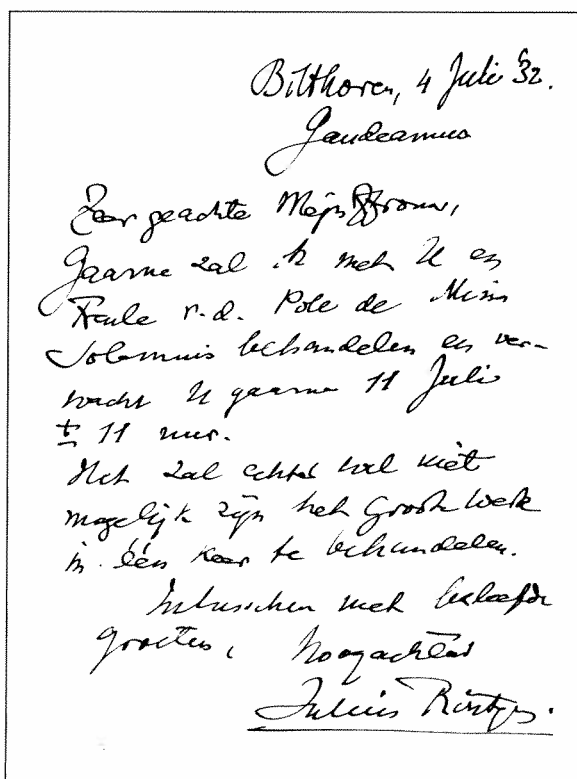 Bilthoven, 4 Juli '32.
Gaudeamus
Zeer geachte Mejuffrouw,
Gaarne zal ik met U en
Freule v.d. Pole de Missa
Solemnis behandelen en ver-
wacht U gaarne 11 Juli
± 11 uur.
Het zal echter wel niet
mogelijk zijn het Groote Werk
in één keer te behandelen.
Intusschen met beleefde
groeten, hoogachtend
Julius Röntgen.